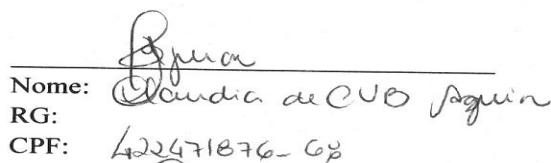 Nome: Claudia de CVB Aguiar
RG:
CPF: 422471876-68